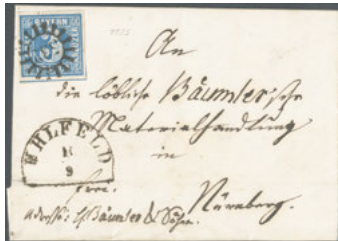 BAYERN
KREUZER
An
die löbliche Bäumler'sche
Materialhandlung
in
Nürnberg.
UHLFELD
9
frei.
adresse: Bäumler & Söhne.